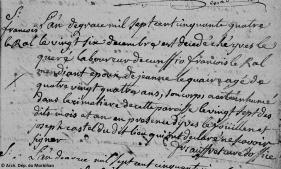 St
francois
le Ral
L'an de grace mil sept cent cinquante quatre
le vingt six decembre est decedé chés yves le
queré laboureur de francois le Ral
mendiant époux de jeanne le quaire agé de
quatre vingt quatre ans, son corps a eté inhumé
dans le cimetiere de cette paroisse le vingt sept des
dits mois et an en presence d'yves le fouiller et
joseph castel du dit lieu qui ont declaré ne scavoir
signer
L'an de grace mil sept cent cinquante
© Arch. Dép. du Morbihan